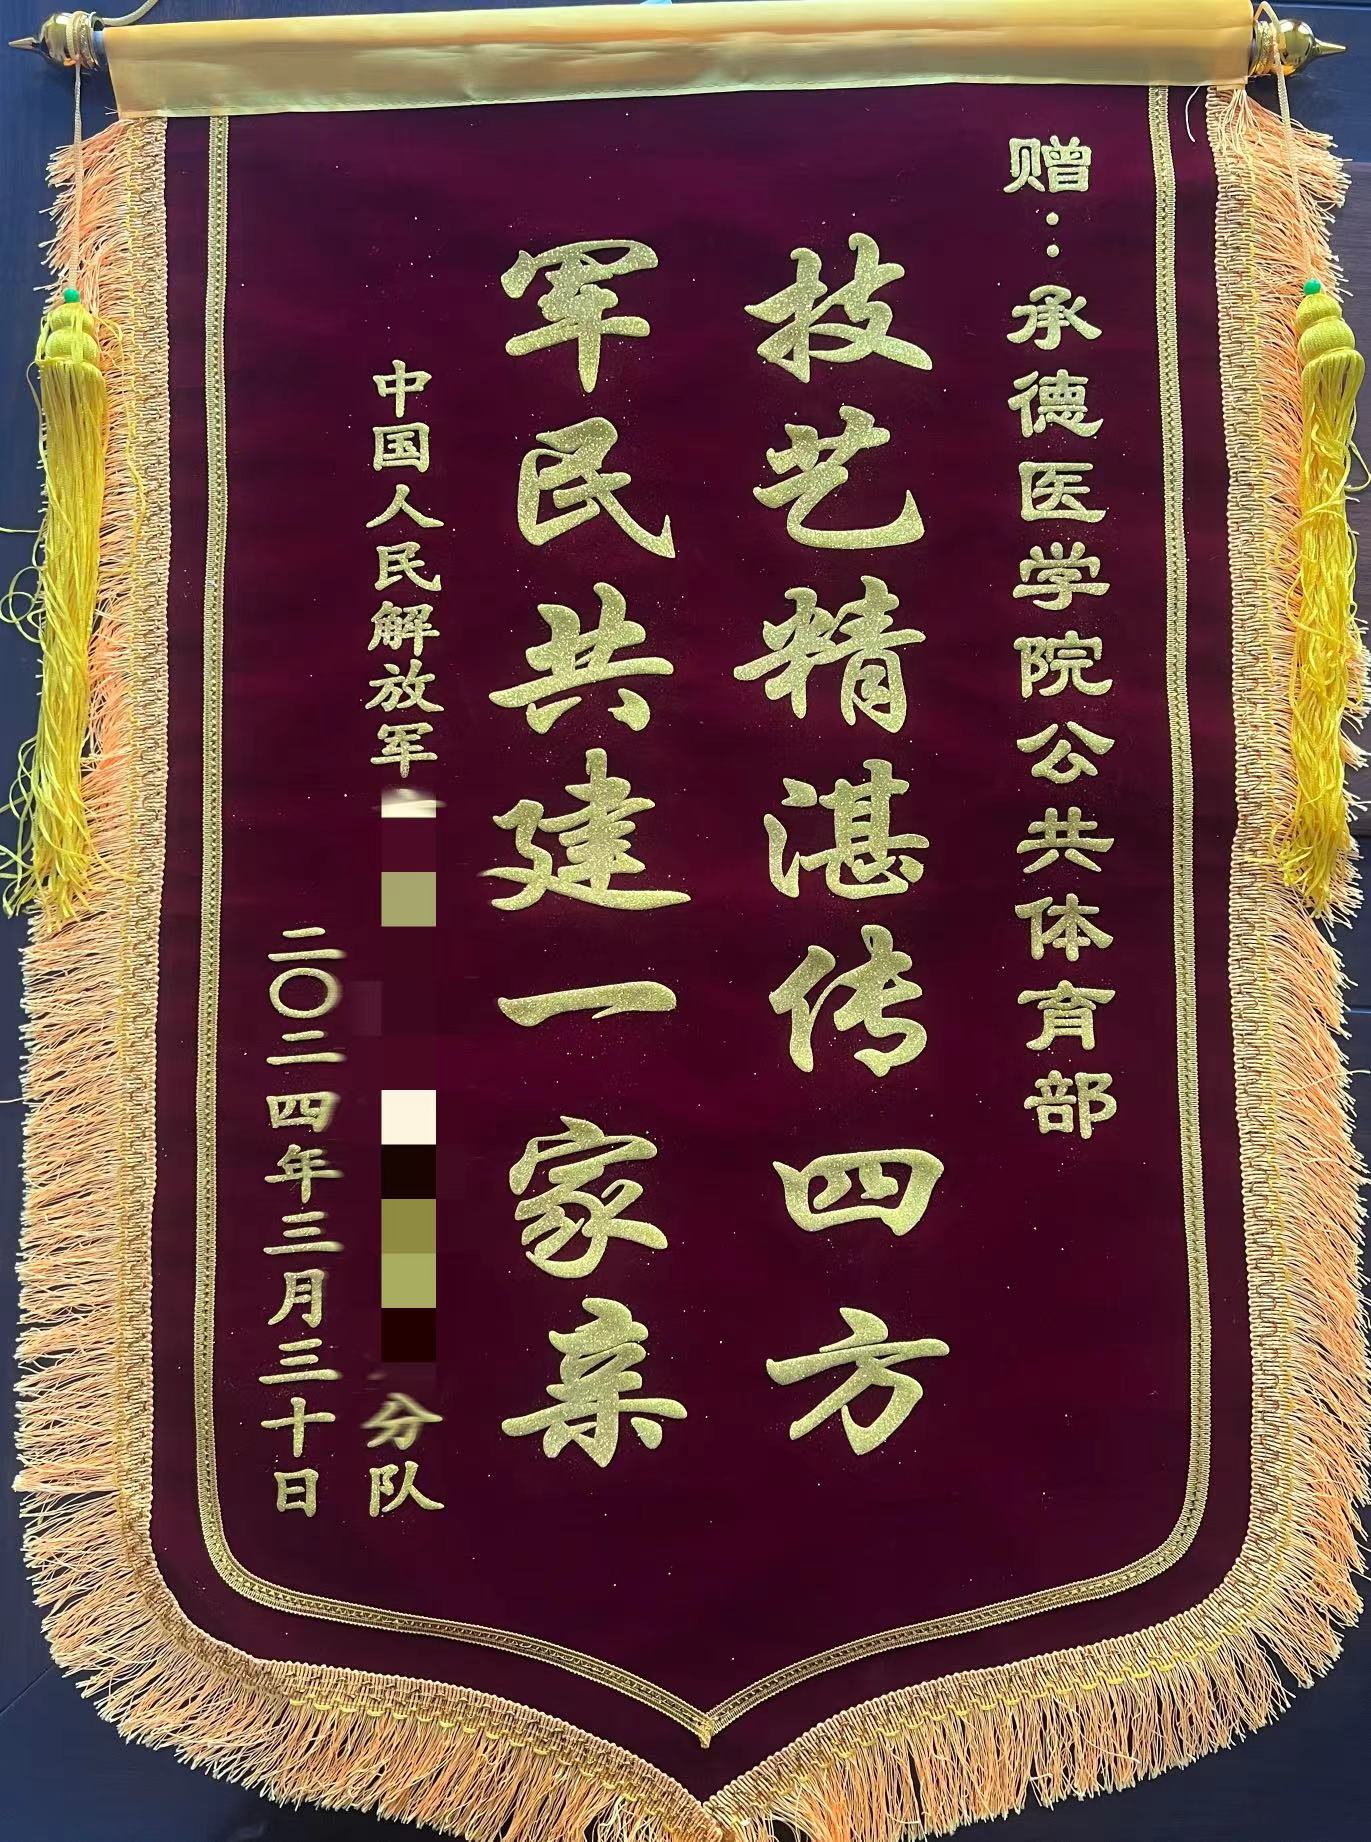 赠：承德医学院公共体育部
技艺精湛传四方
军民共建一家亲
中国人民解放军
分队
二〇二四年三月三十日